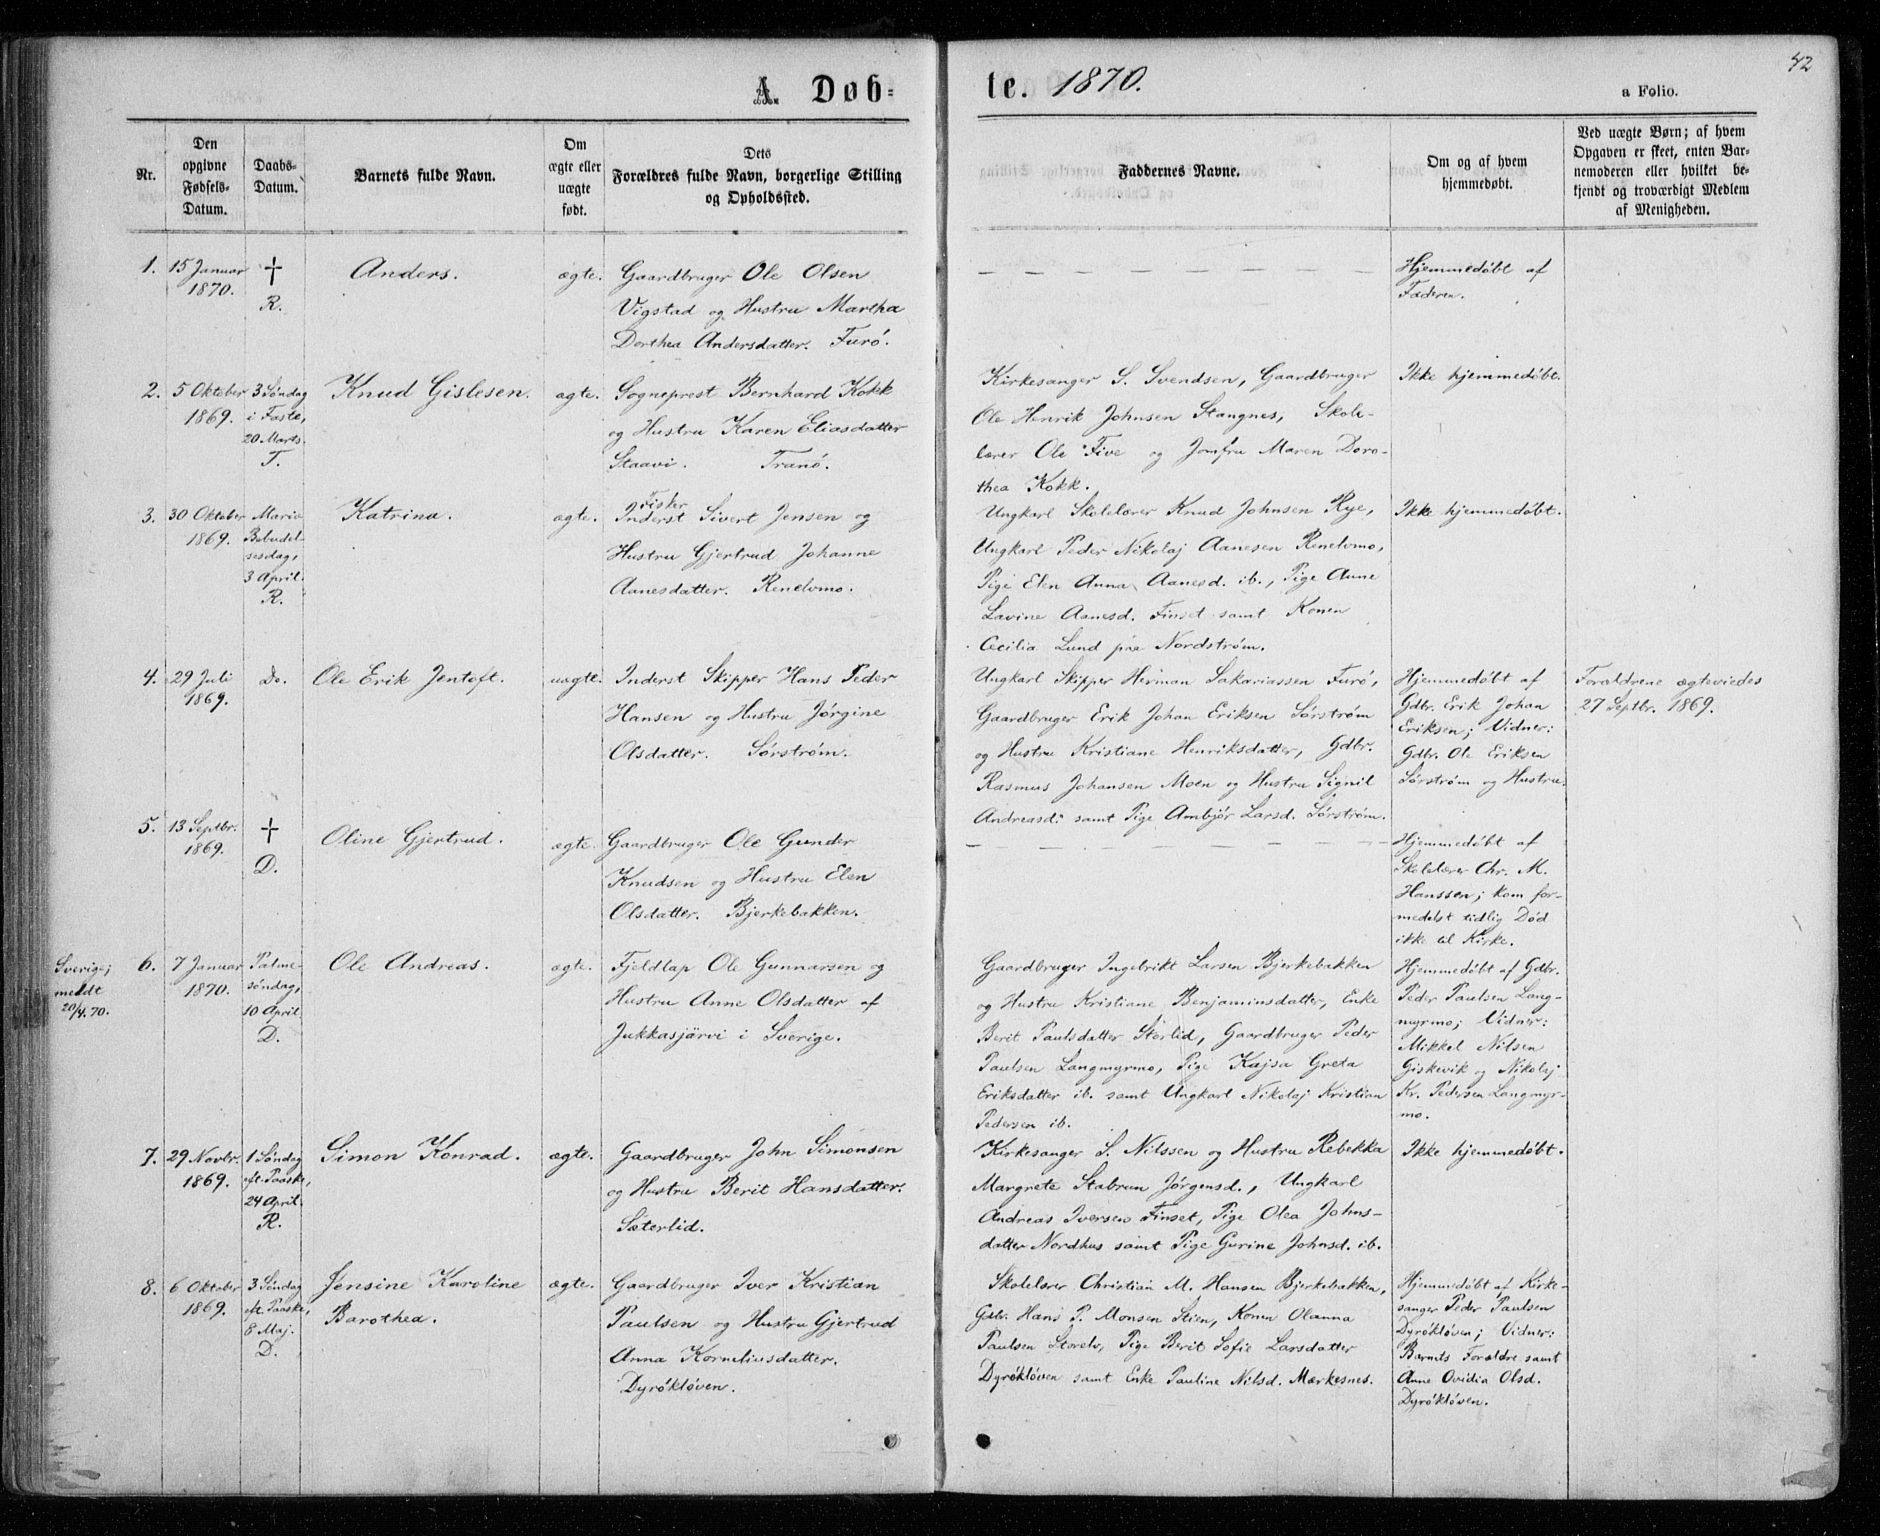 42
A Døb-
te. 1870.
a Folio.
Nr.
Den
opgivne
Fødsels-
Datum.
Daabs-
Datum.
Barnets fulde Navn.
Om
ægte eller
uægte
født.
Dets
Forældres fulde Navn, borgerlige Stilling
og Opholdssted.
Faddernes Navne.
Om og af hvem
hjemmedøbt.
Ved uægte Børn; af hvem
Opgaven er skeet, enten Bar-
nemoderen eller hvilket be-
kjendt og troværdigt Medlem
af Menigheden.
1.
15 Januar
1870.
†
R.
Anders.
ægte.
Gaardbruger Ole Olsen
Vigstad og Hustru Martha
Dorthea Andersdatter. Furö.
Hjemmedøbt af
Faderen.
2.
5 Oktober
1869.
3 Søndag
i Faste,
20 Marts.
T.
Knud Gislesen.
ægte.
Sogneprest Bernhard Kokk
og Hustru Karen Eliasdatter
Staavi. Tranö.
Kirkesanger S. Svendsen, Gaardbruger
Ole Henrik Johnsen Stangnes, Skole-
lærer Ole Five og Jomfru Maren Doro-
thea Kokk.
Ikke hjemmedøbt.
3.
30 Oktober
1869.
Maria
Bebudel-
sesdag,
3 April.
R.
Katrina.
ægte.
Fisker
Inderst Sivert Jensen og
Hustru Gjertrud Johanne
Aanesdatter. Renelvmo.
Ungkarl Skolelærer Knud Johnsen Rye,
Ungkarl Peder Nikolaj Aanesen Renelvmo,
Pige Elen Anna Aanesd. ib., Pige Anne
Lavine Aanesd. Finset samt Konen
Cecilia Lund paa Nordstrøm.
Ikke hjemmedøbt.
4.
29 Juli
1869.
Do.
Ole Erik Jentoft.
uægte.
Inderst Skipper Hans Peder
Hansen og Hustru Jörgine
Olsdatter. Sörström.
Ungkarl Skipper Herman Sakariassen Furö,
Gaardbruger Erik Johan Eriksen Sörström
og Hustru Kristiane Henriksdatter, Gdbr.
Rasmus Johansen Moen og Hustru Signil
Andreasd. samt Pige Ambjör Larsd. Sörström.
Hjemmedøbt af
Gdbr. Erik Johan
Eriksen; Vidner:
Gdbr. Ole Eriksen
Sörström og Hustru.
Forældrene ægteviedes
27 Septbr. 1869.
5.
13 Septbr.
1869.
†
D.
Oline Gjertrud.
ægte.
Gaardbruger Ole Gunder
Knudsen og Hustru Elen
Olsdatter. Bjerkebakken.
Hjemmedøbt af
Skolelærer Chr. M.
Hanssen; kom for-
medelst tidlig Död
ikke til Kirke.
Sverige;
meldt
20/4. 70.
6.
7 Januar
1870.
Palme-
søndag,
10 April.
D.
Ole Andreas.
ægte.
Fjeldlap Ole Gunnarsen og
Hustru Anne Olsdatter af
Jukkasjärvi i Sverige.
Gaardbruger Ingebrikt Larsen Bjerkebakken
og Hustru Kristiane Benjaminsdatter, Enke
Berit Paulsdatter Storlid, Gaardbruger Peder
Paulsen Langmyrmo, Pige Kajsa Greta
Eriksdatter ib. samt Ungkarl Nikolaj Kristian
Pedersen ib.
Hjemmedøbt af Gdbr.
Peder Paulsen Lang-
myrmo; Vidner:
Mikkel Nilsen
Giskevik og Nikolaj
Kr. Pedersen Langmyr-
mo.
7.
29 Novbr.
1869.
1 Søndag
eft. Paaske,
24 April.
R.
Simon Konrad.
ægte.
Gaardbruger John Simonsen
og Hustru Berit Hansdatter.
Sæterlid.
Kirkesanger S. Nilssen og Hustru Rebekka
Margrete Stabrun Jörgensd., Ungkarl
Andreas Iversen Finset, Pige Olea Johns-
datter Nordhus samt Pige Gurine Johnsd. ib.
Ikke hjemmedøbt.
8.
6 Oktober
1869.
3 Søndag
eft. Paaske,
8 Maj.
D.
Jensine Karoline
Barothea.
ægte.
Gaardbruger Iver Kristian
Paulsen og Hustru Gjertrud
Anna Korneliusdatter.
Dyröklöven.
Skolelærer Christian M. Hansen Bjerkebakken,
Gdbr. Hans P. Monsen Stien, Konen Olanna
Paulsen Storelv, Pige Berit Sofie Larsdatter
Dyröklöven samt Enke Pauline Nilsd. Mærkesnes.
Hjemmedøbt af Kirke-
sanger Peder Paulsen
Dyröklöven; Vidner:
Barnets Forældre samt
Anne Ovidia Olsd.
Dyröklöven.